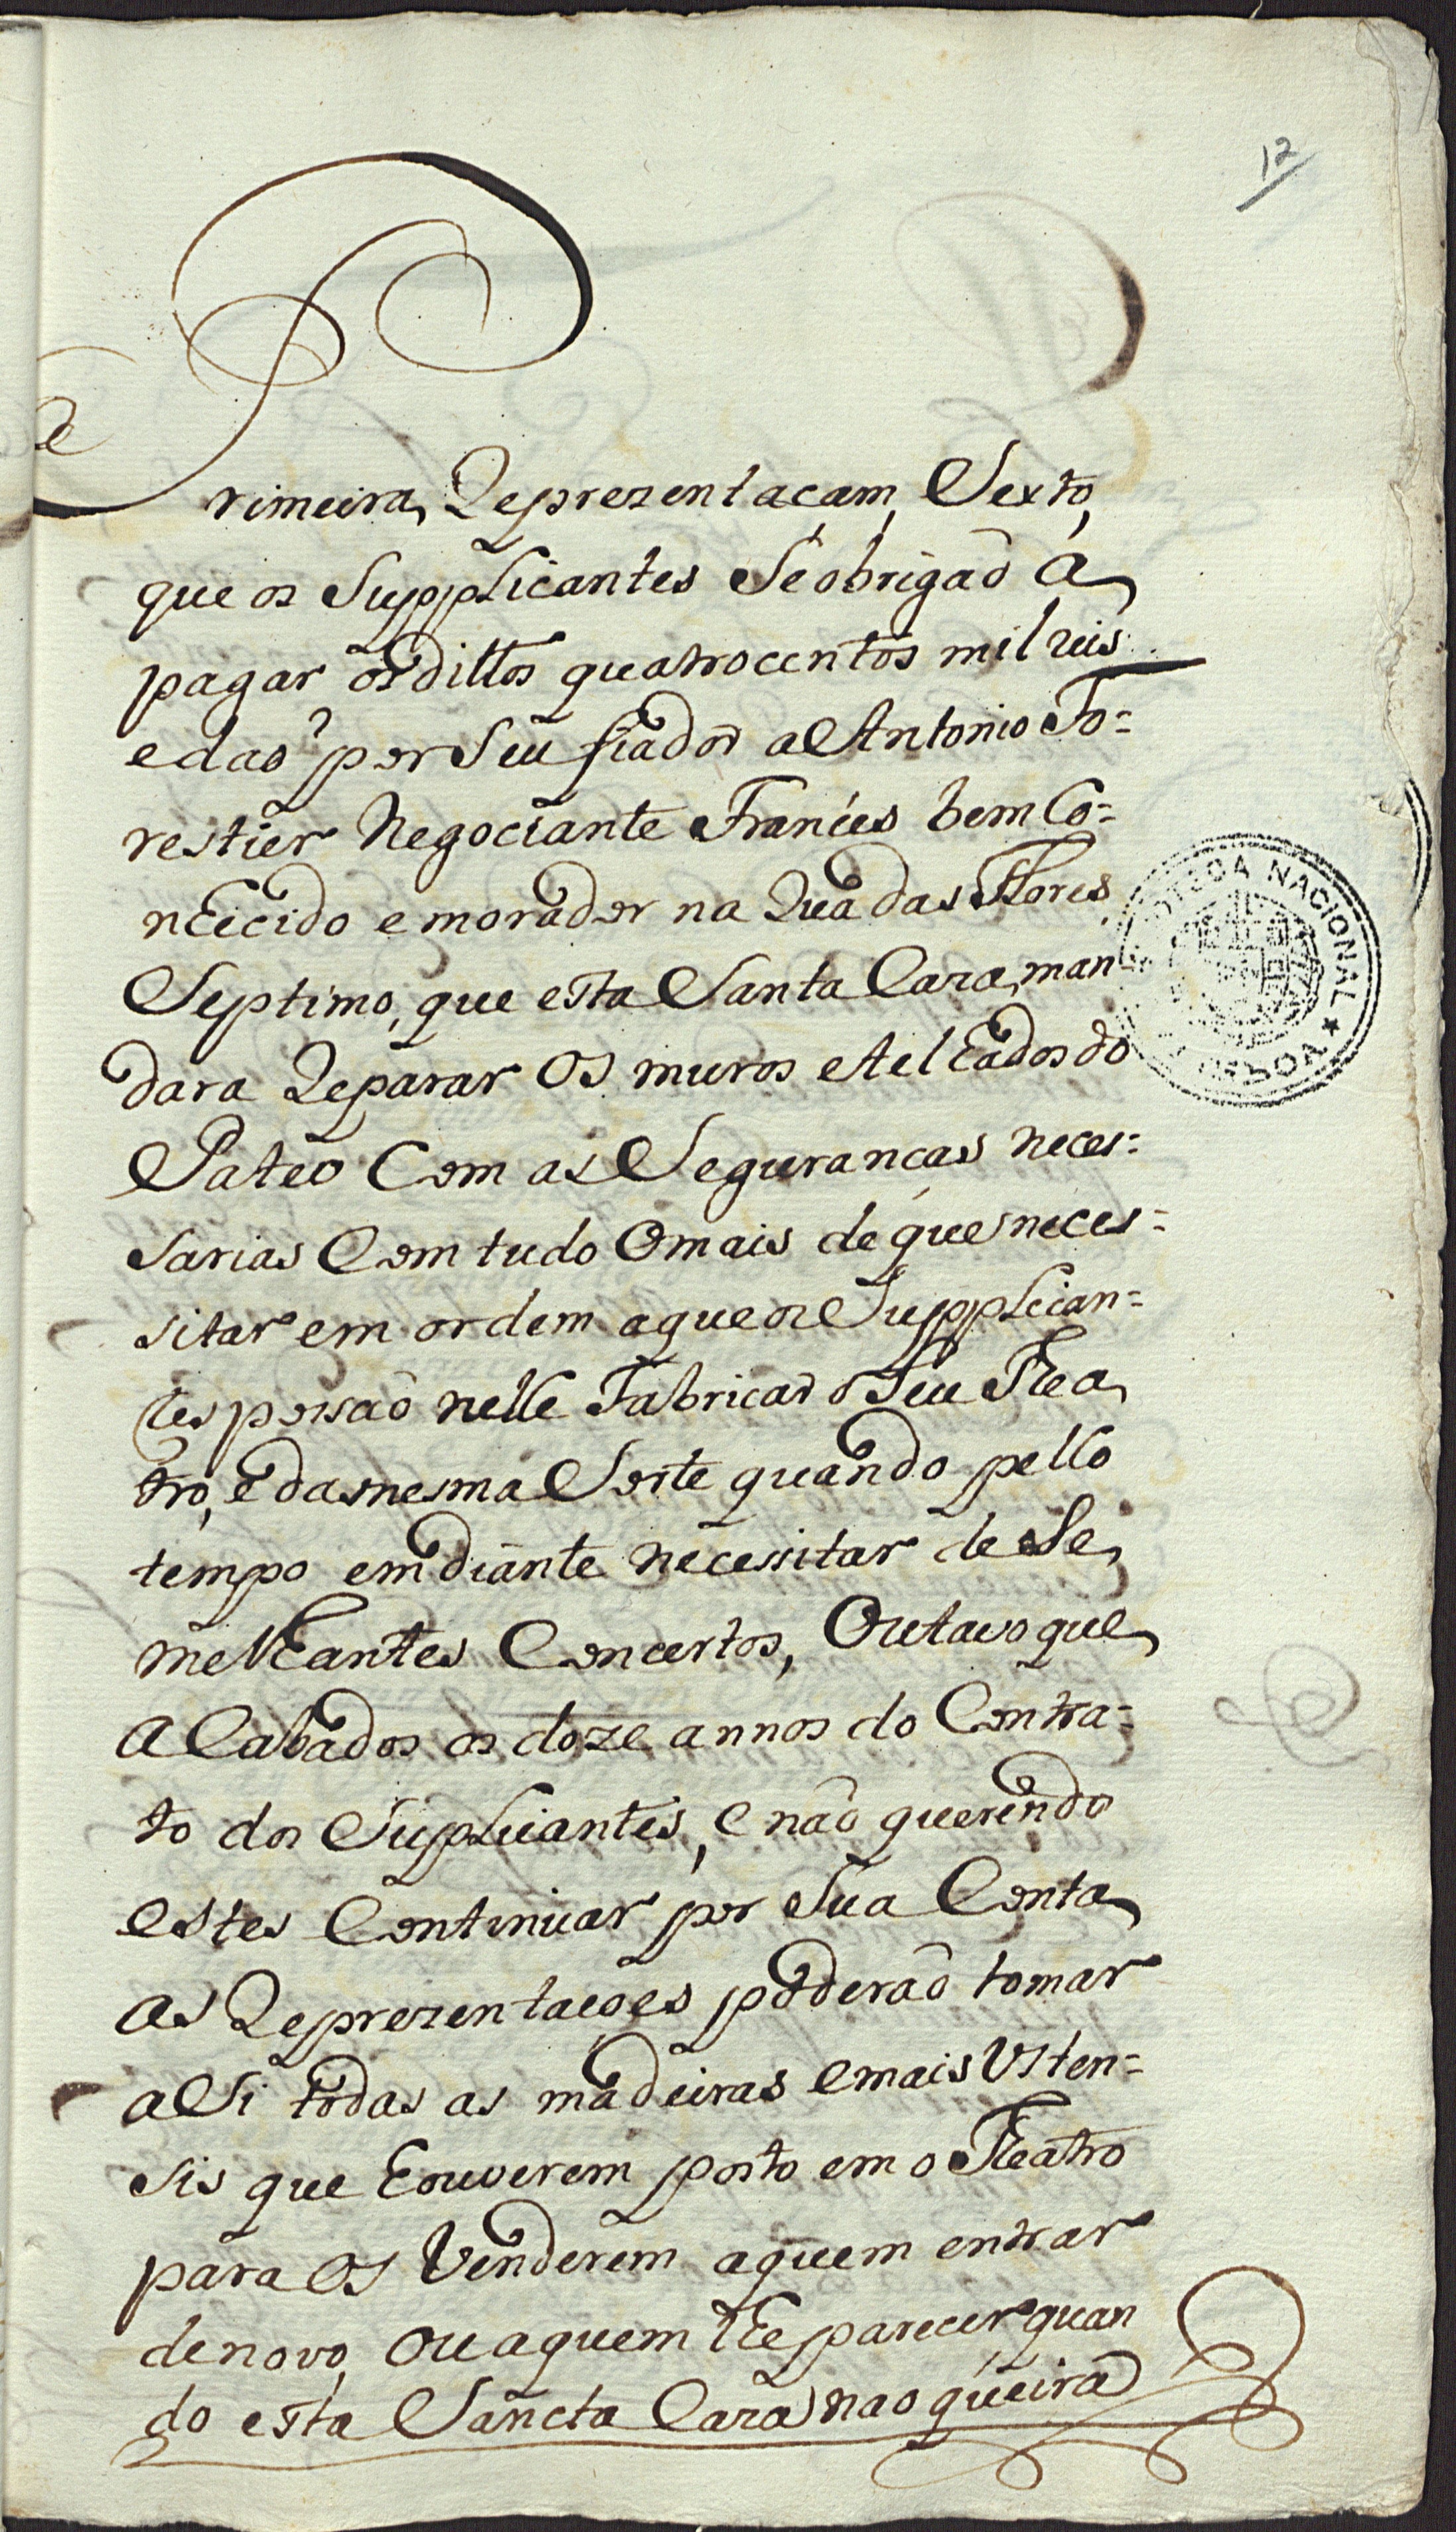 12
Primeira Reprezentaçam, Sexto,
que os Suppplicantes Se obrigaõ a
pagar os dittos quatrocentos mil reis
e daõ por Seu fiador a Antonio Fo=
restier Negociante Frances bem Co=
nhecido e morador na Rua das Flores
Septimo, que esta Santa Caza, man=
dara Reparar Os muros e telhados do
Pateo Com as Seguranças neces=
sarias Com tudo O mais de que neces=
sitar em ordem a que os Suppplican=
tes possaõ nelle Fabricar o Seu Thea
tro, e da mesma Sorte quando pello
tempo em diante necessitar de Se
melhantes Concertos, Outavo que
a Cabados os doze annos do Contra=
to dos Supplicantes, e naõ querendo
estes Continuar por Sua Conta
as Reprezentaçoes poderaõ tomar
a Si todas as madeiras e mais Vsten=
sis que houverem posto em o Theatro
para Os Venderem a quem entrar
de novo, Ou a quem lhe parecer quan
do esta Sancta Caza nao queira
BIBLIOTECA NACIONAL ★ LISBOA ★